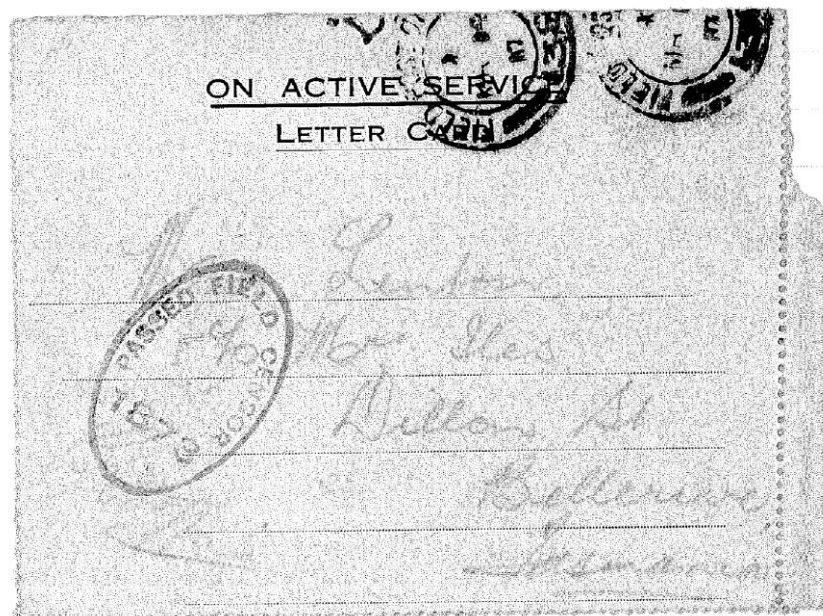 ON ACTIVE SERVICE
LETTER CARD
FIELD
FIELD
PASSED FIELD CENSOR
Lenton
c/o Mr. Iles
Dillon St
Bellerive
Tasmania